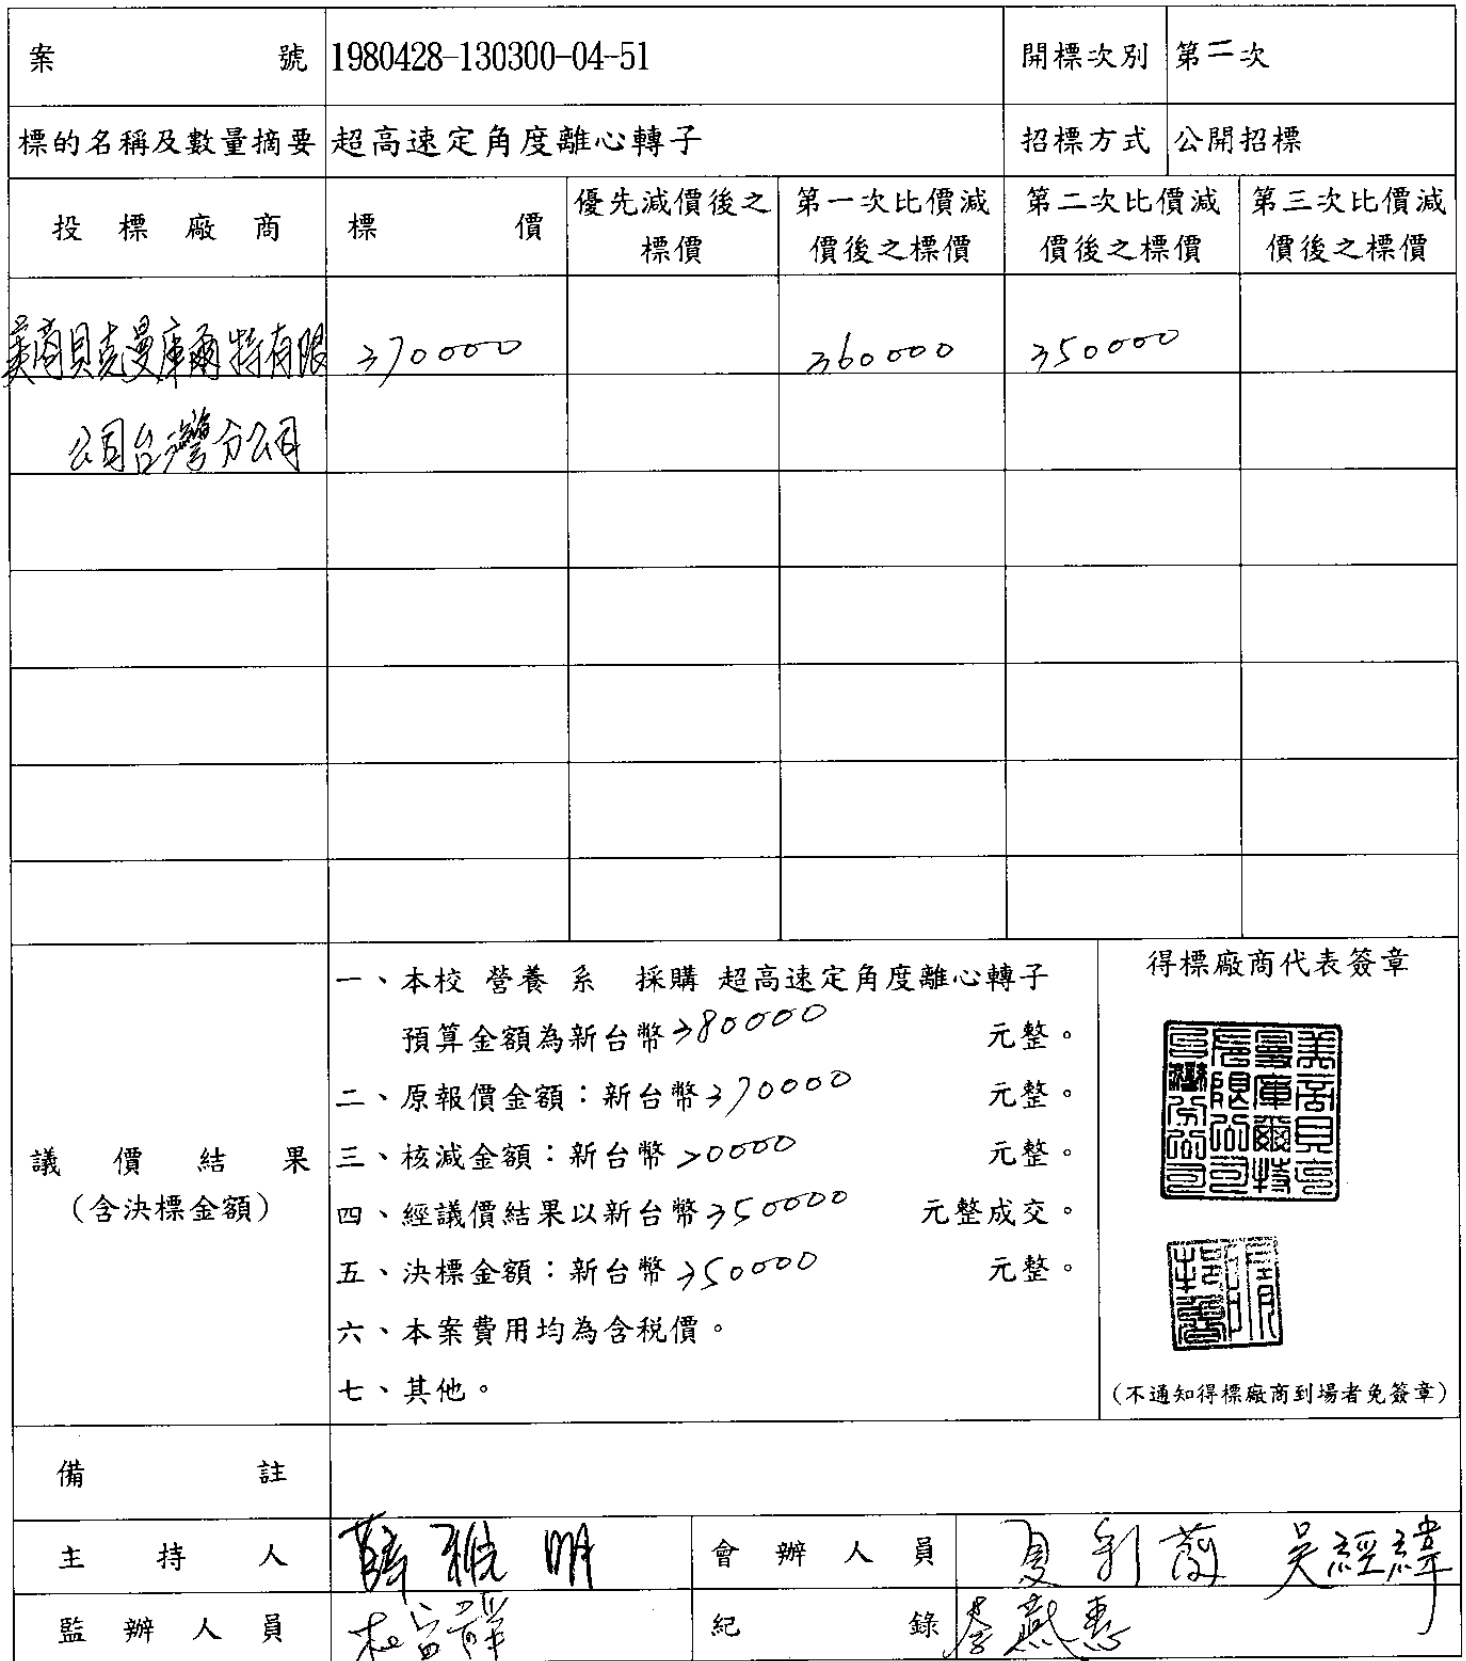 案號 1980428-130300-04-51 開標次別 第二次
標的名稱及數量摘要 超高速定角度離心轉子 招標方式 公開招標
投標廠商 標價 優先減價後之標價 第一次比價減價後之標價 第二次比價減價後之標價 第三次比價減價後之標價
美商貝克曼庫爾特有限 370000 360000 350000
公司台灣分公司
一、本校 營養 系 採購 超高速定角度離心轉子
預算金額為新台幣380000 元整。
二、原報價金額：新台幣370000 元整。
議價結果
（含決標金額）
三、核減金額：新台幣20000 元整。
四、經議價結果以新台幣350000 元整成交。
五、決標金額：新台幣350000 元整。
六、本案費用均為含稅價。
七、其他。
得標廠商代表簽章
美商貝克
曼庫爾特
有限公司
台灣分公司
（不通知得標廠商到場者免簽章）
備註
主持人 會辦人員 吳經緯
監辦人員 紀錄 李燕惠